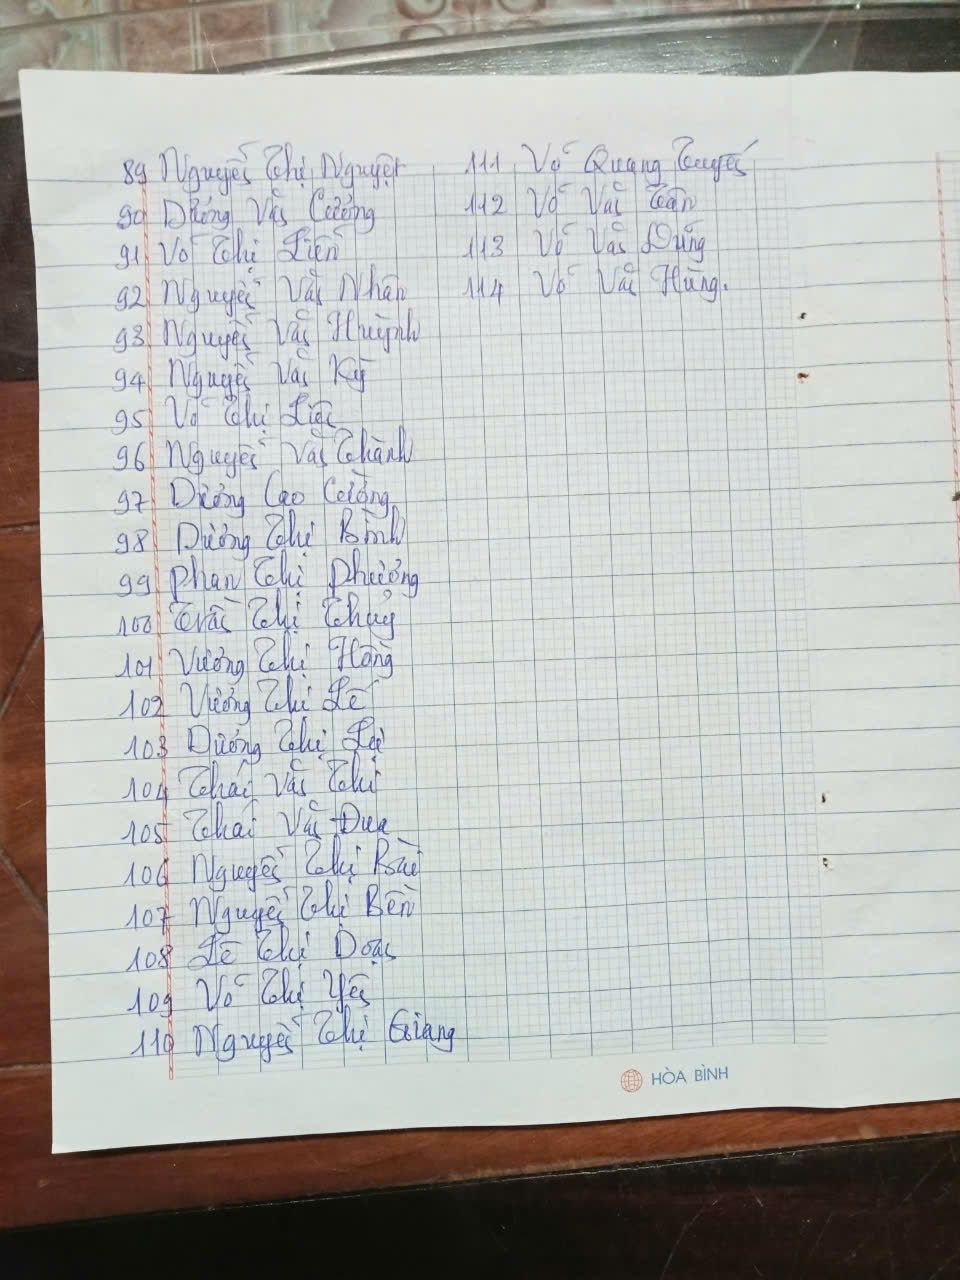 89 Nguyễn Thị Nguyệt
90 Dương Văn Cường
91 Võ Thị Liên
92 Nguyễn Văn Nhân
93 Nguyễn Văn Huỳnh
94 Nguyễn Văn Kỳ
95 Võ Thị Liên
96 Nguyễn Văn Thành
97 Dương Cao Cường
98 Dương Thị Bình
99 Phan Thị Phương
100 Trần Thị Thủy
101 Vương Thị Hồng
102 Vương Thị Lê
103 Dương Thị
104 Thái Văn Thi
105 Thái Văn Dua
106 Nguyễn Thị
107 Nguyễn Thị Bền
108 Lê Thị Doan
109 Võ Thị Yến
110 Nguyễn Thị Giang
111 Võ Quang Tuyến
112 Võ Văn Tân
113 Võ Văn Dũng
114 Võ Văn Hùng.
HÒA BÌNH